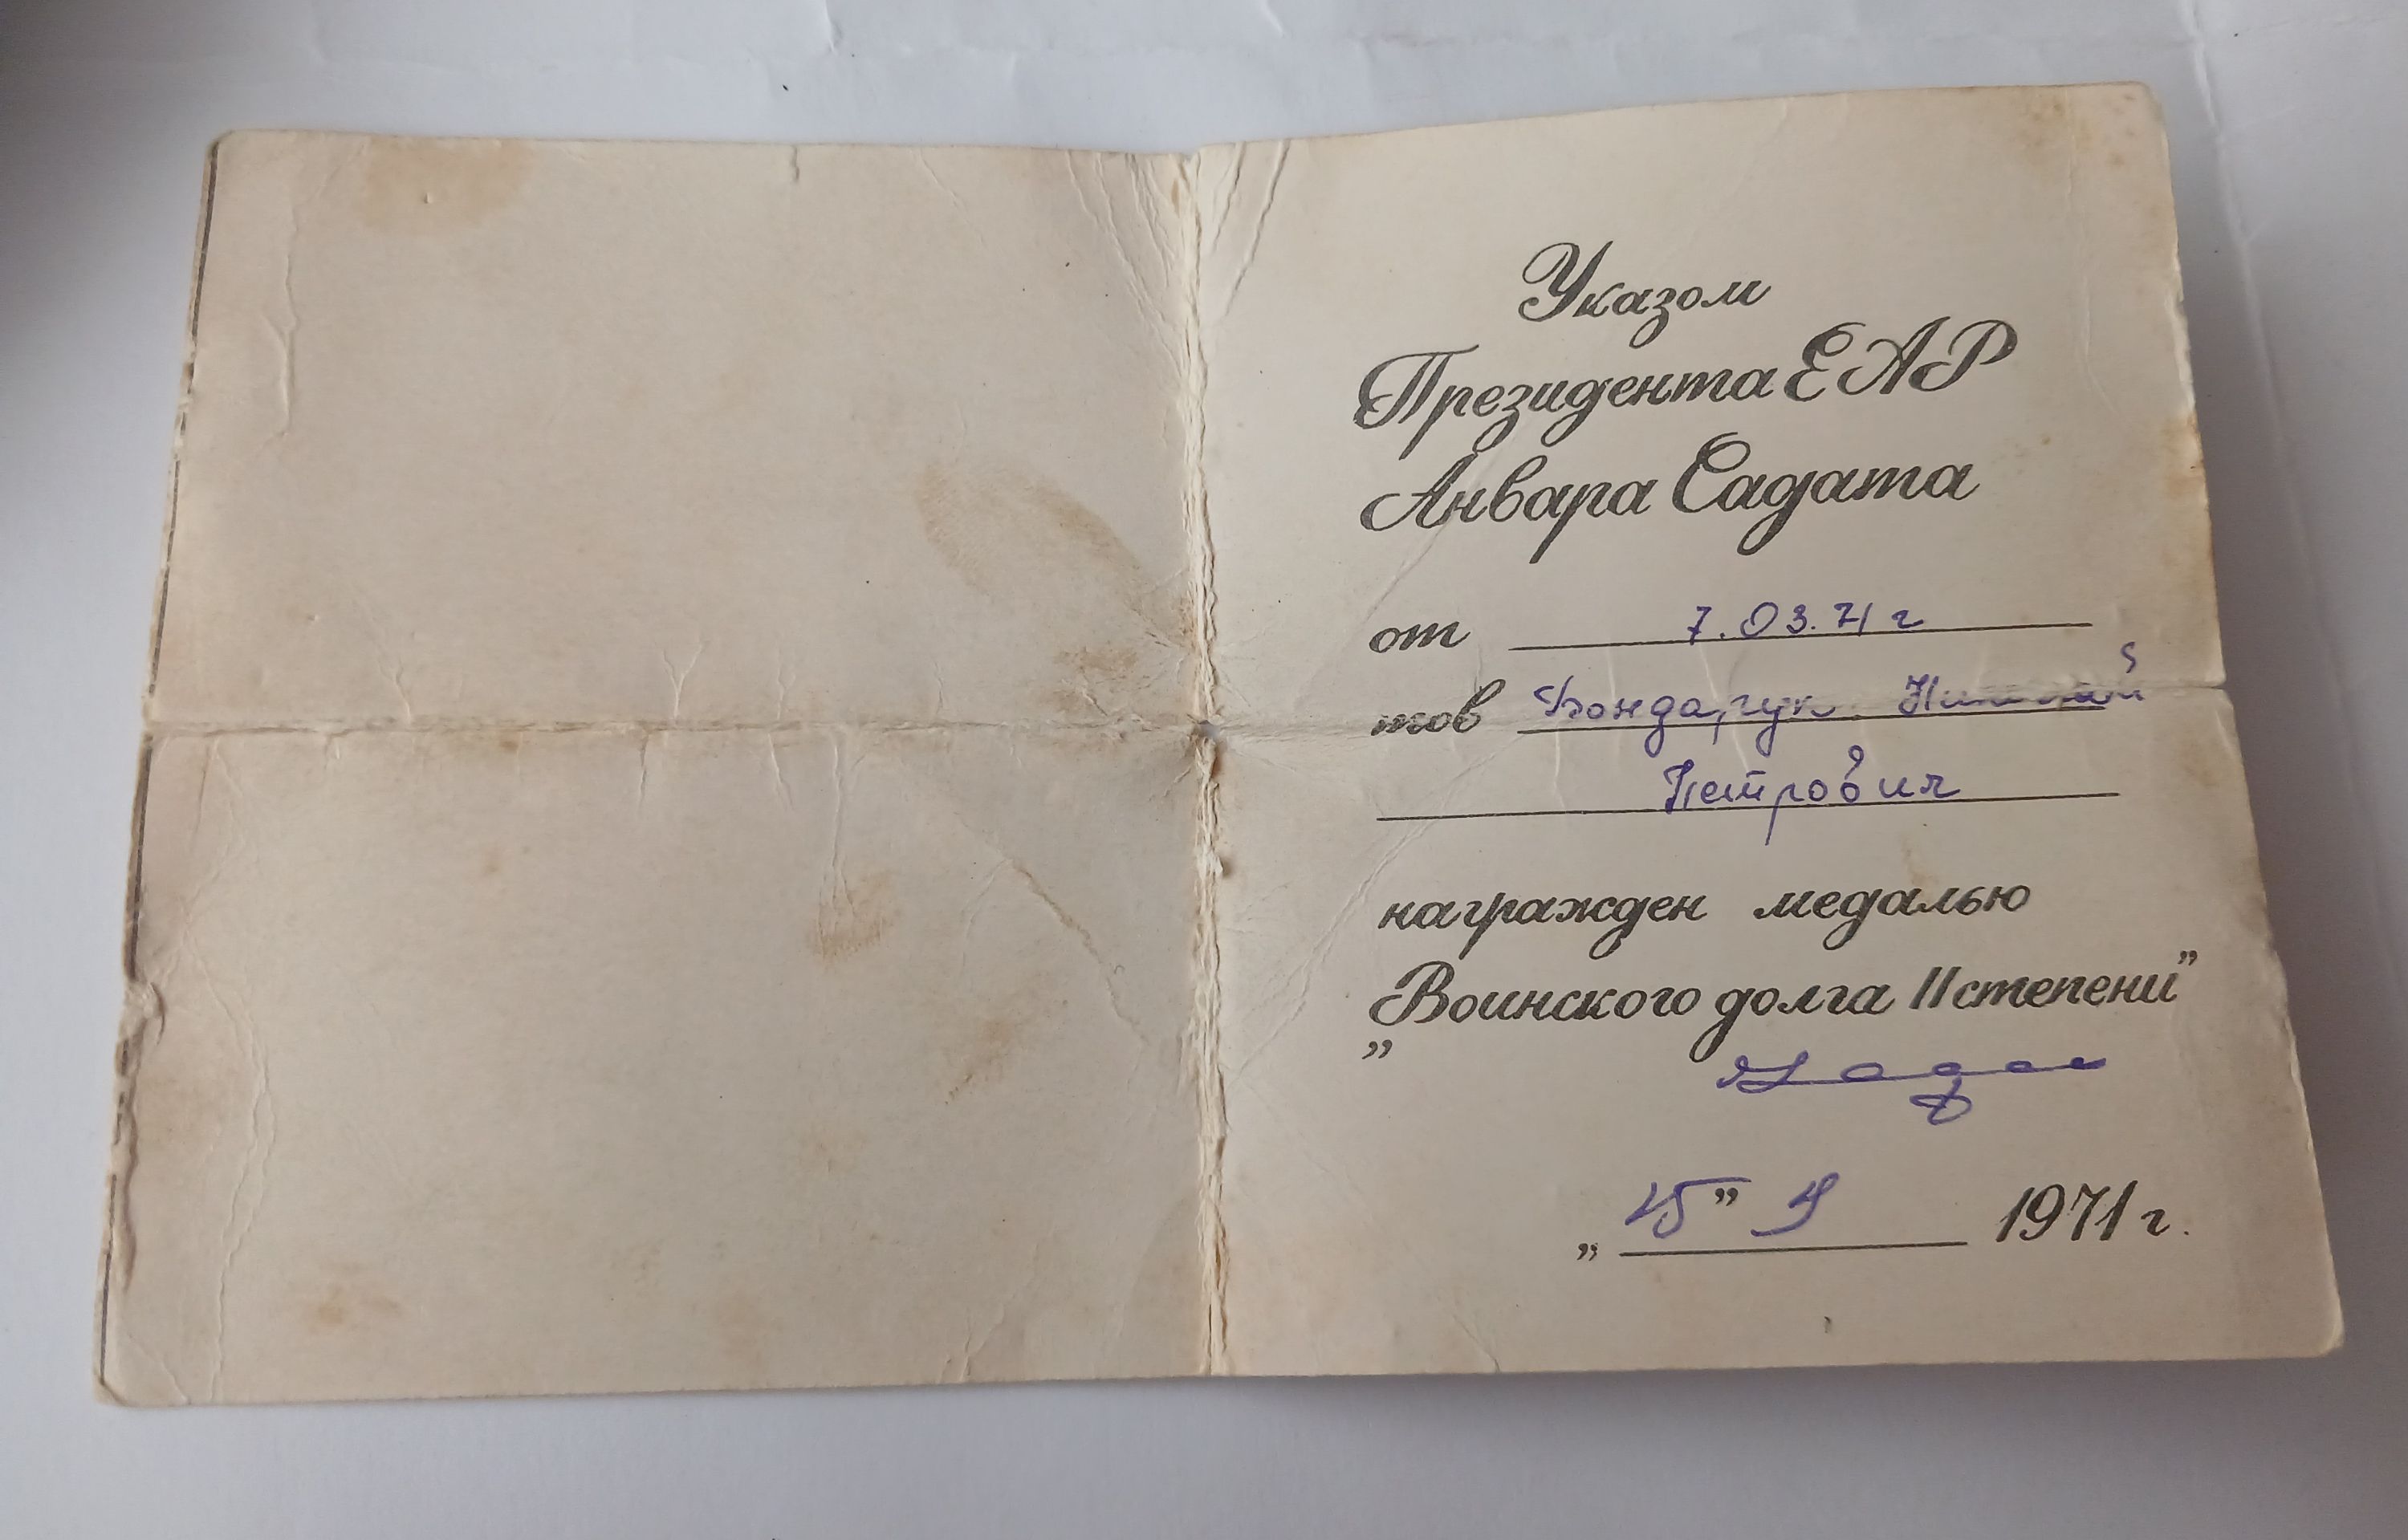 Указом
Президента ЕАР
Анвара Садата
от 7.03.71 г
тов Бондарчук Николай
Петрович
награжден медалью
"Воинского долга II степени"
„ 15 " 1971 г.